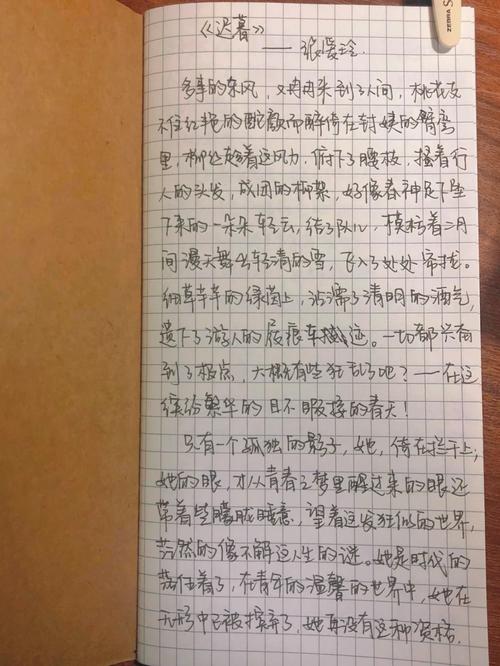 《迟暮》
——张爱玲.
多事的东风，又冉冉来到了人间，桃花支
不住红艳的酡颜而醉倚在封姨的臂弯
里，柳丝趁着这风力，俯下了腰枝，搔着行
人的头发，成团的柳絮，好像春神足下坠
下来的一朵朵轻云，结了队儿，模拟着二月
间漫天舞出轻清的雪，飞入了处处帘栊。
细草芊芊的绿茵上，沾濡了清明的酒气，
遗下了游人的屐痕车迹。一切都兴奋
到了极点，大概有些狂乱了吧？——在这
缤纷繁华的目不暇接的春天！
只有一个孤独的影子，她，倚在拦干上；
她的眼，才从青春之梦里醒过来的眼还
带着些朦胧睡意，望着这发狂似的世界，
茫然的像不解这人生的谜。她是时代的
落伍者了，在青年的温馨的世界中，她在
无形中已被摈弃了，她再没有这种资格，
ZEBRA